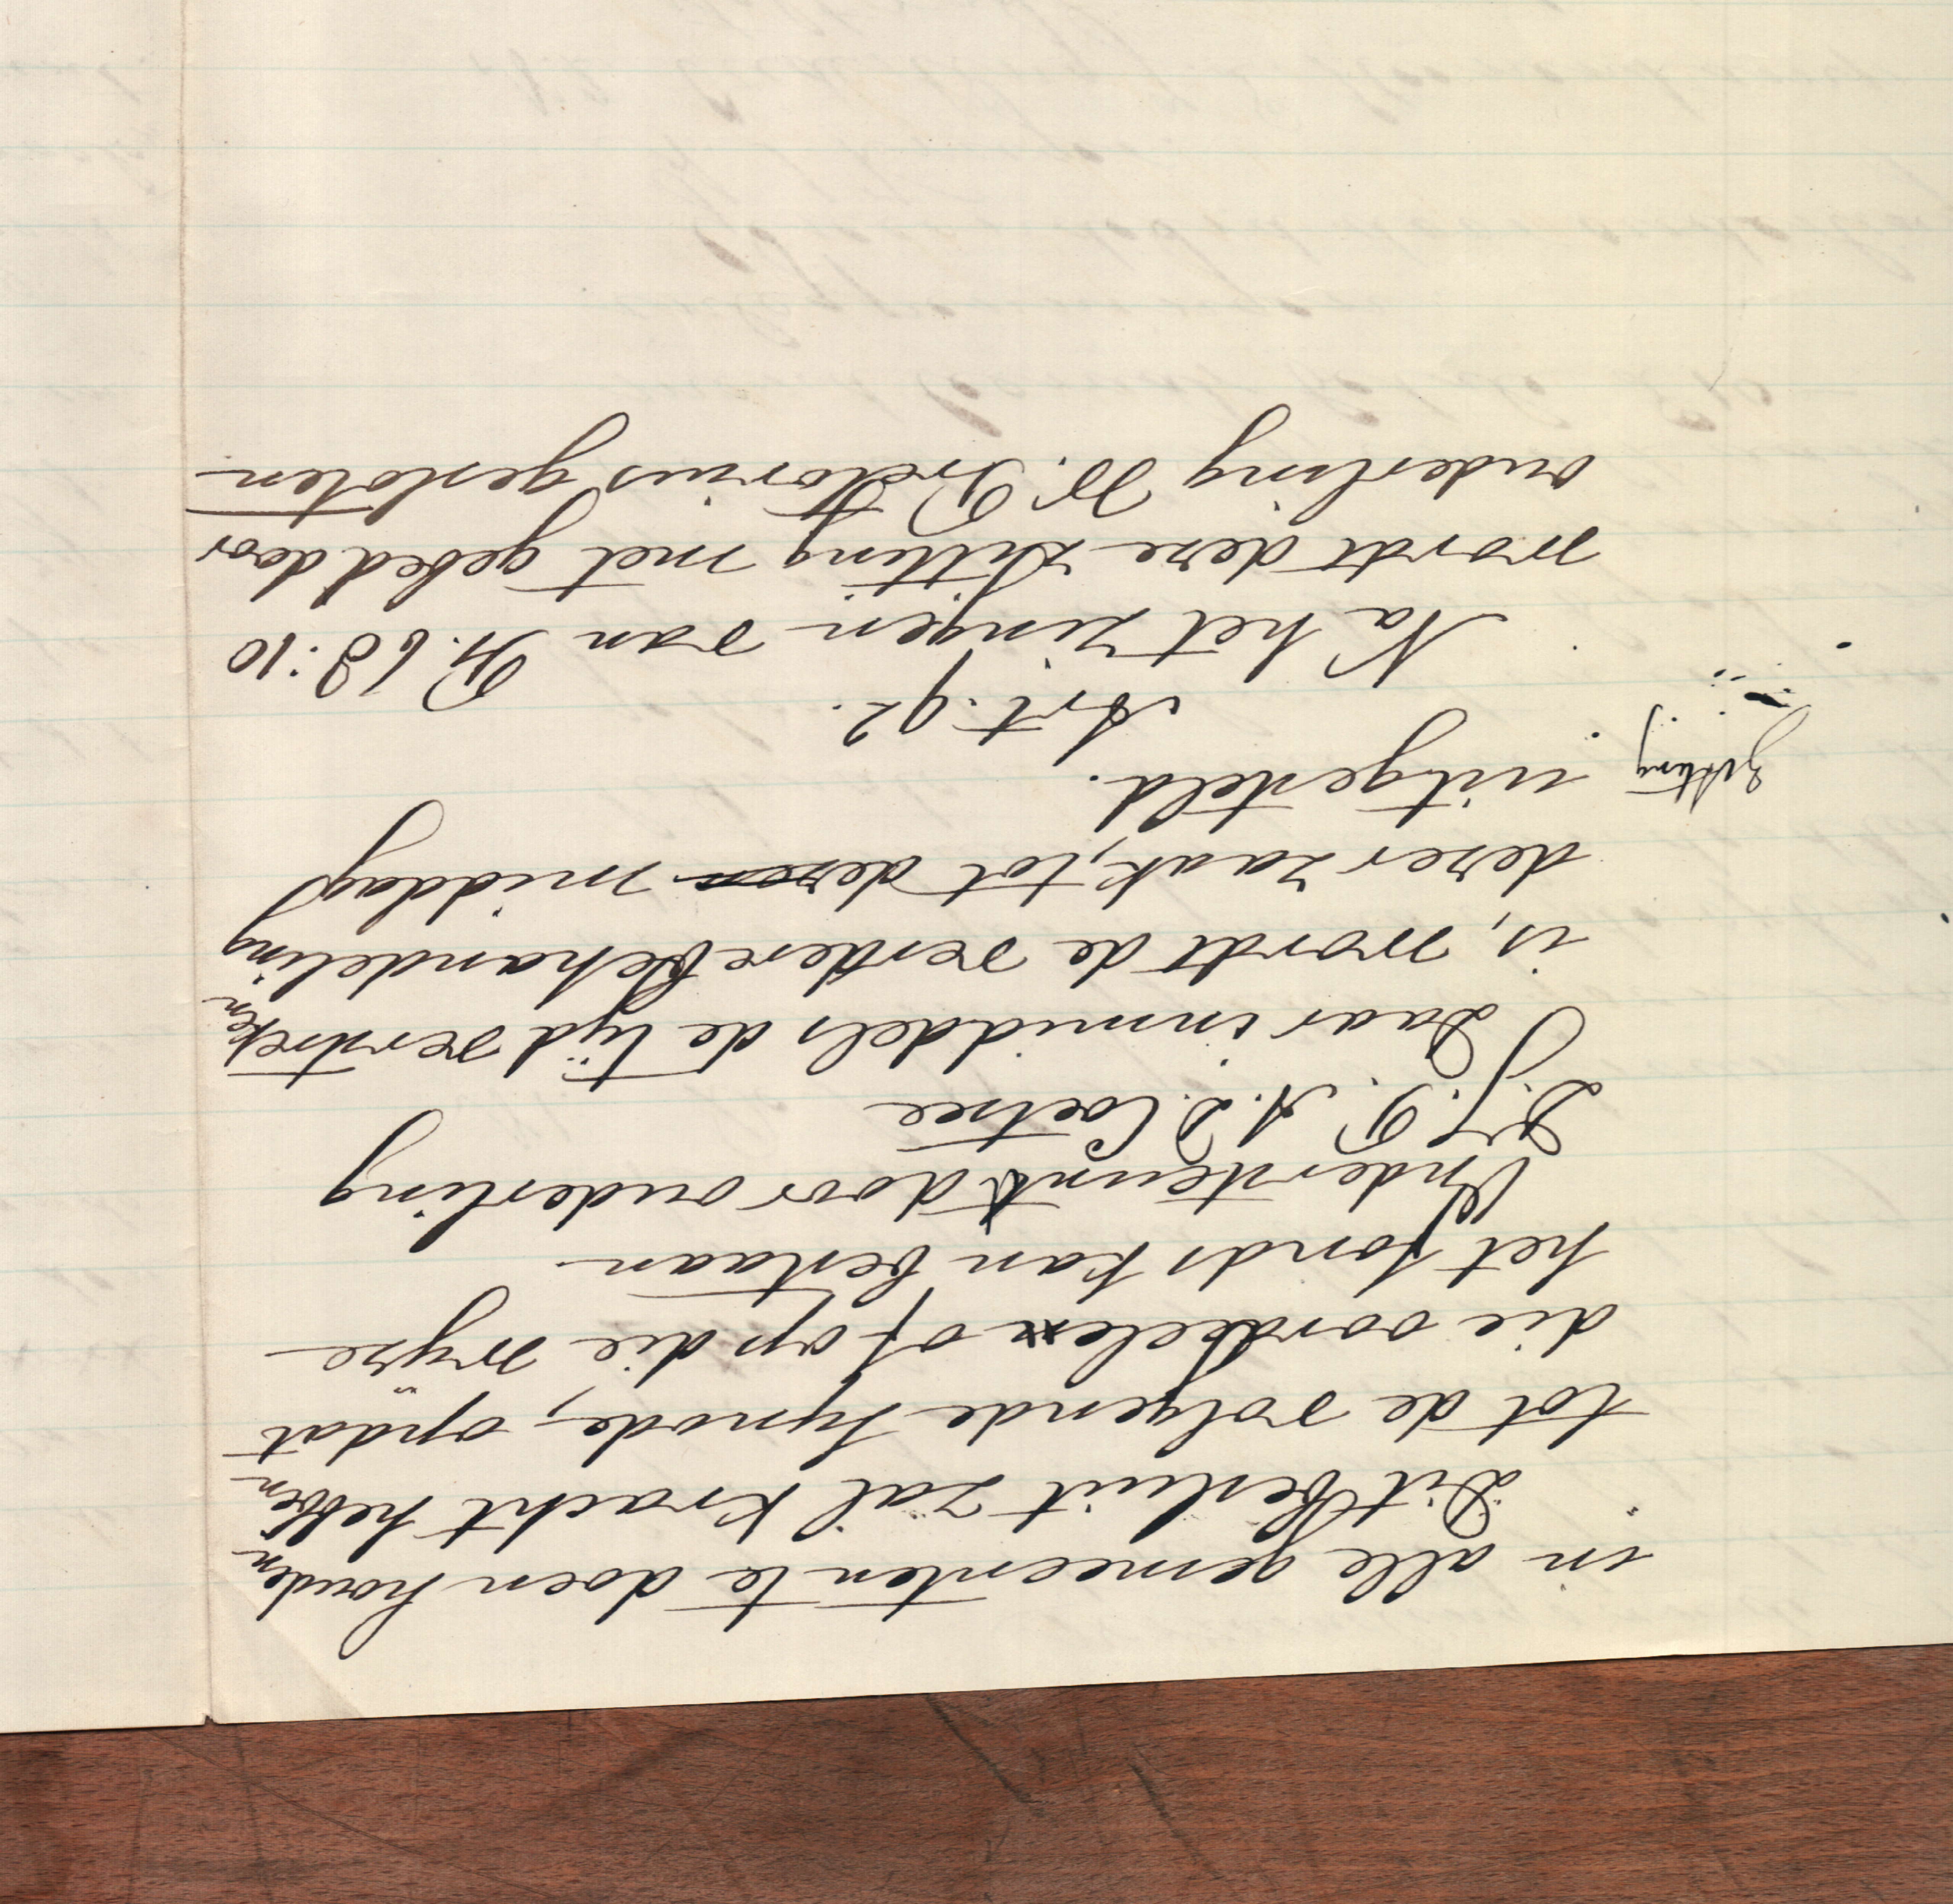 in alle gemeenten te doen houden
Dit besluit zal kracht hebben
tot de volgende Synode, opdat
die oordeele of op die wijze
het fonds kan bestaan
Ondersteunt door ouderling
D. J. P. A. D. Coetzee
Daar inmiddels de tijd verstreken
is, wordt de verdere behandeling
dezer zaak, tot dezen middag
uitgesteld.
Zitting
Art. 92.
Na het zingen van Ps. 68:10
wordt deze zitting met gebed door
ouderling W. Pretorius gesloten